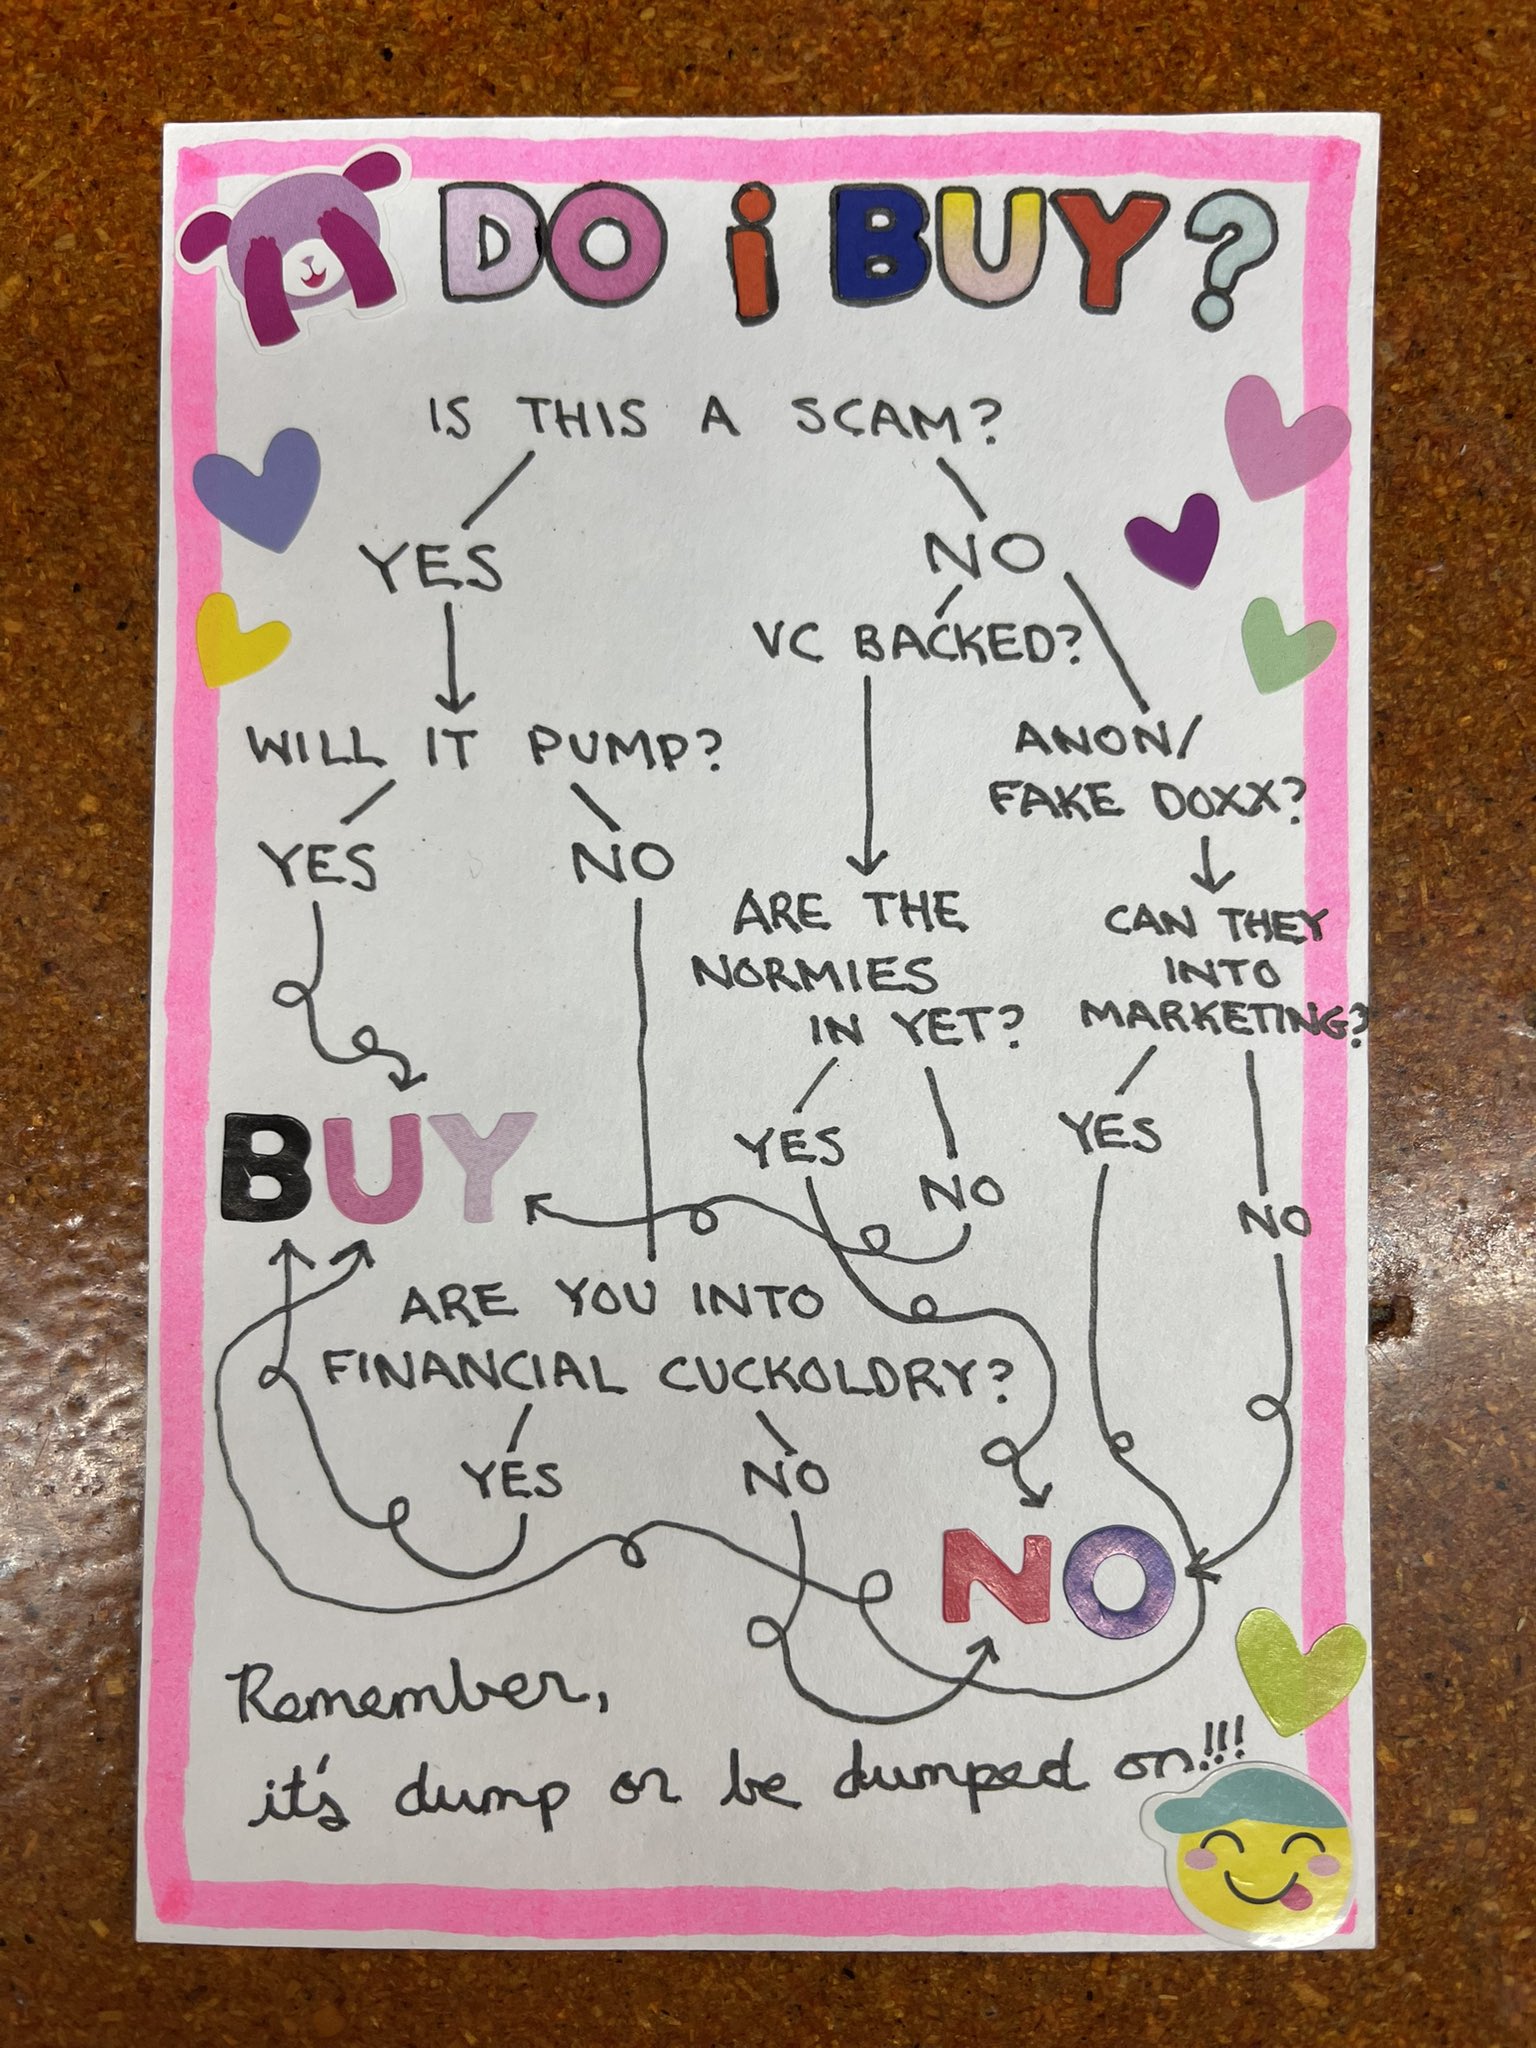 DO i BUY?
IS THIS A SCAM?
YES
NO
VC BACKED?
WILL IT PUMP?
ANON/
FAKE DOXX?
YES
NO
ARE THE
NORMIES
IN YET?
CAN THEY
INTO
MARKETING?
YES
NO
YES
NO
BUY
ARE YOU INTO
FINANCIAL CUCKOLDRY?
YES
NO
NO
Remember,
it's dump or be dumped on!!!